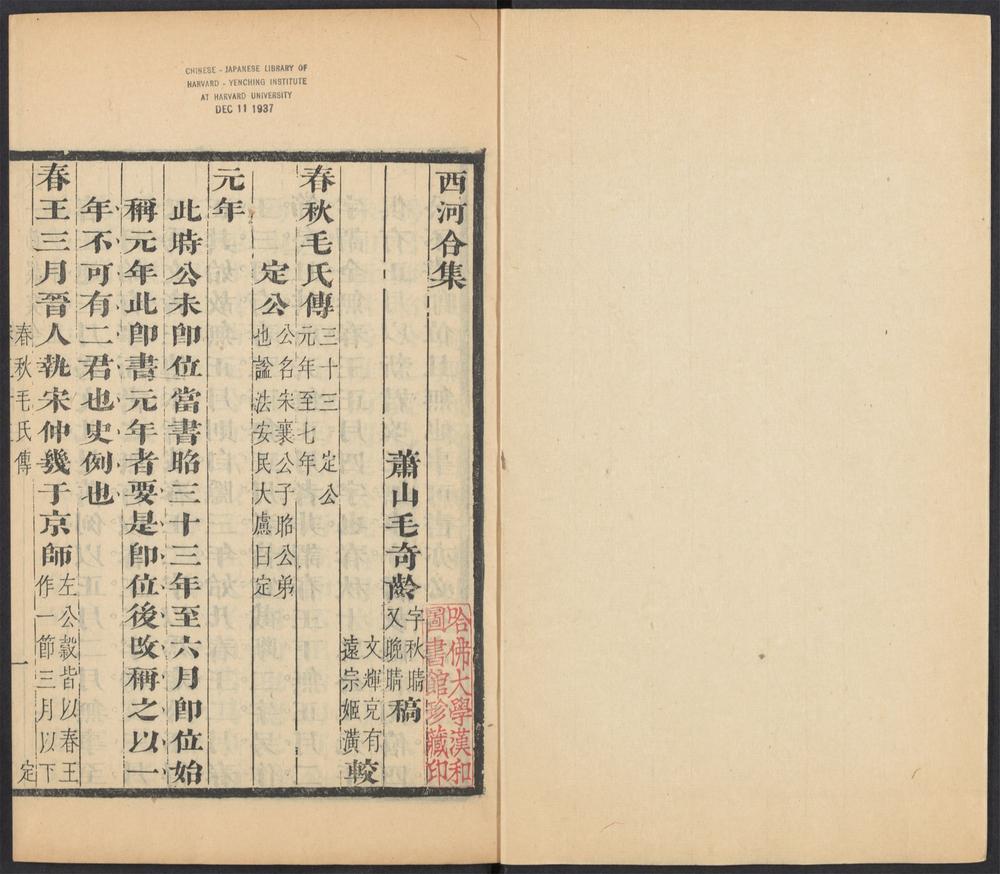 CHINESE - JAPANESE LIBRARY OF
HARVARD - YENCHING INSTITUTE
AT HARVARD UNIVERSITY
DEC 11 1937
西河合集
哈佛大學漢和
圖書館珍藏印
蕭山毛奇齡
字秋晴
又晚晴
稿
文輝克有
遠宗姬潢
較
春秋毛氏傳
三十三 定公
元年至七年
定公
公名宋襄公子昭公弟
也諡法安民大慮曰定
元年
此時公未卽位當書昭三十三年至六月卽位始
稱元年此卽書元年者要是卽位後改稱之以一
年不可有二君也史例也
春王三月晉人執宋仲幾于京師
左公穀皆以春王
作一節三月以下
春秋毛氏傳
定
一